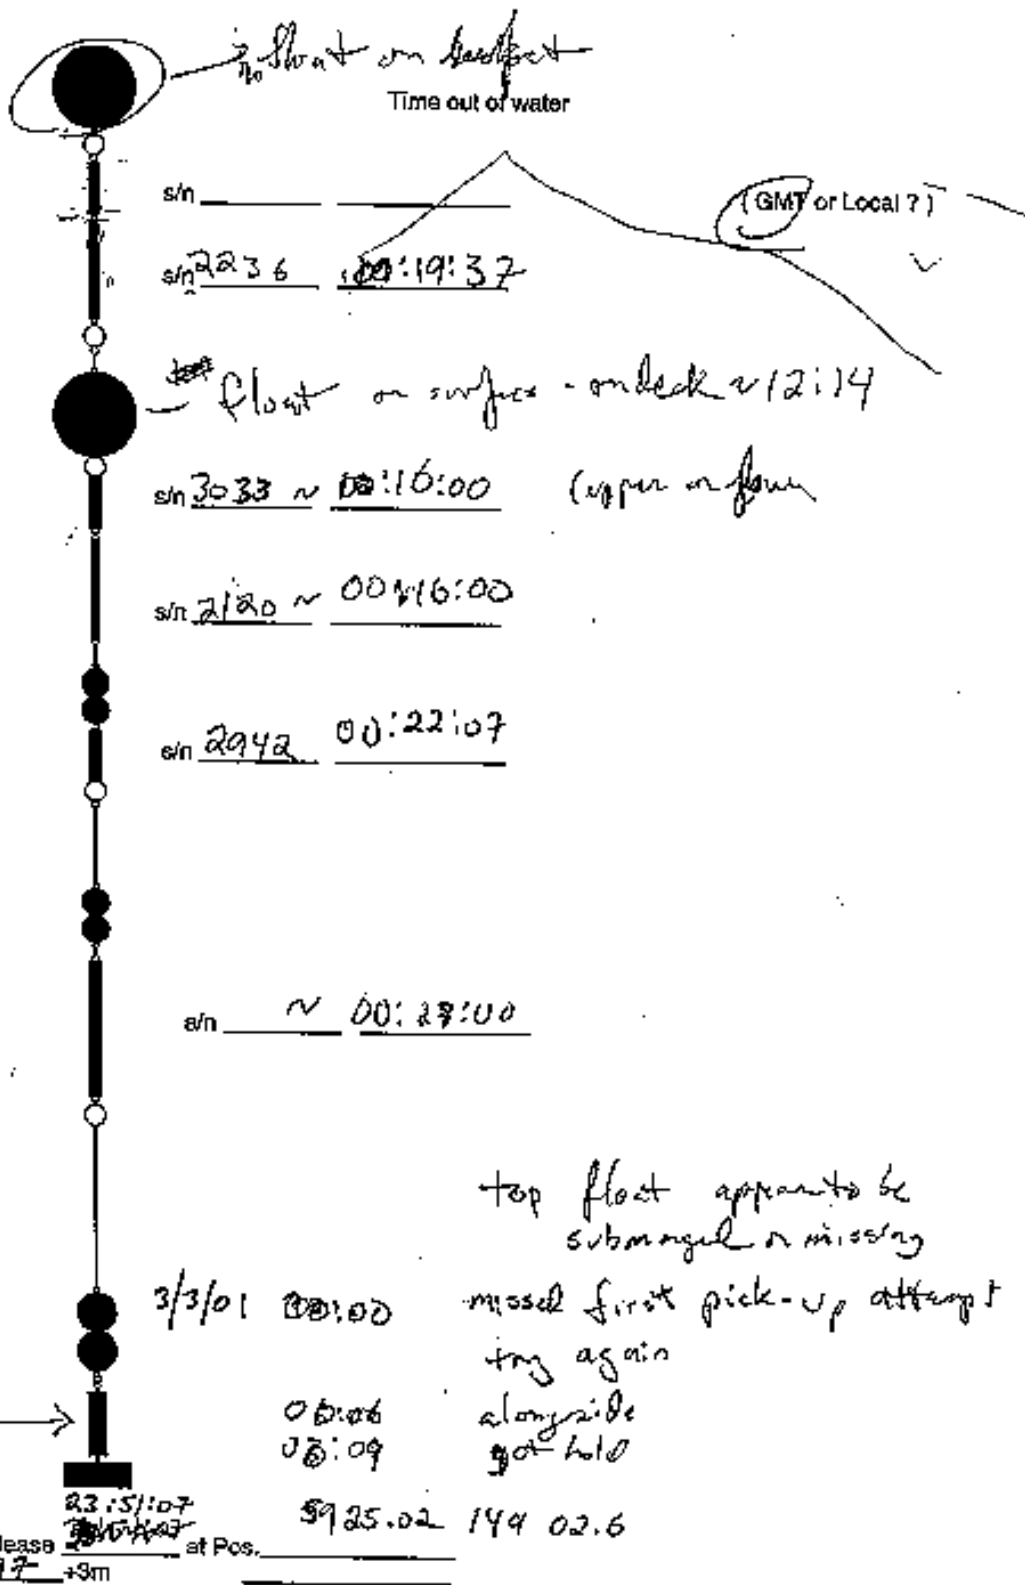 no float on surface
Time out of water
s/n
(GMT or Local ?)
s/n 2236 00:19:37
float on surface - on deck ~ 12:14
s/n 3033 ~ 00:16:00
s/n 2120 ~ 00:16:00
s/n 2942 00:22:07
s/n ~ 00:27:00
top float appears to be
submerged or missing
3/3/01 00:00 missed first pick-up attempt
try again
00:06 alongside
00:09 got hold
23:51:07
5925.02 144 02.6
lease at Pos.